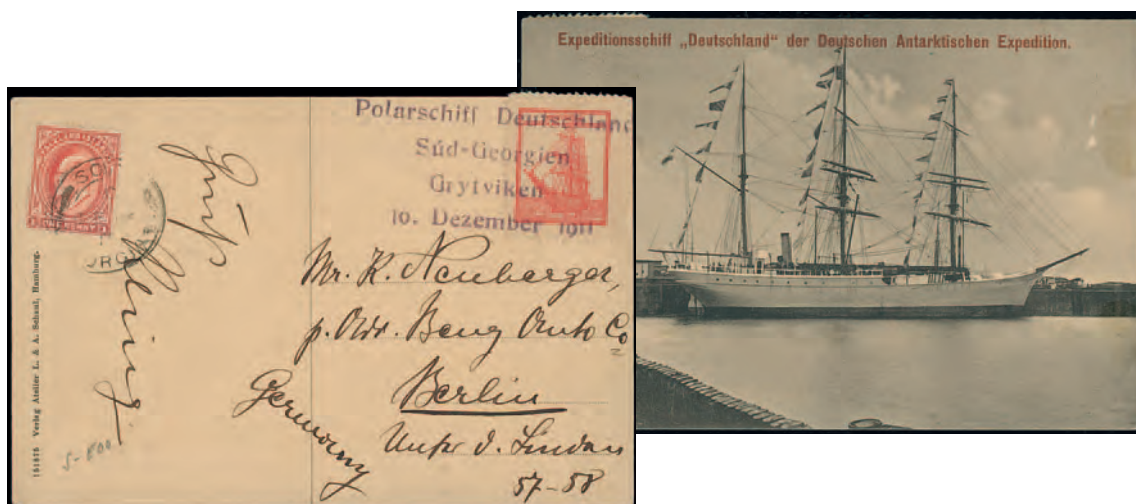 Expeditionsschiff „Deutschland" der Deutschen Antarktischen Expedition.
Polarschiff Deutschland
Süd-Georgien
Grytviken
10. Dezember 1911
ONE PENNY
Gruß
Mr. K. Neuberger,
p. Adr. Benz Auto Co
Berlin
Germany
Unter d. Linden
57-58
151575 Verlag Atelier L. & A. Schaul, Hamburg.